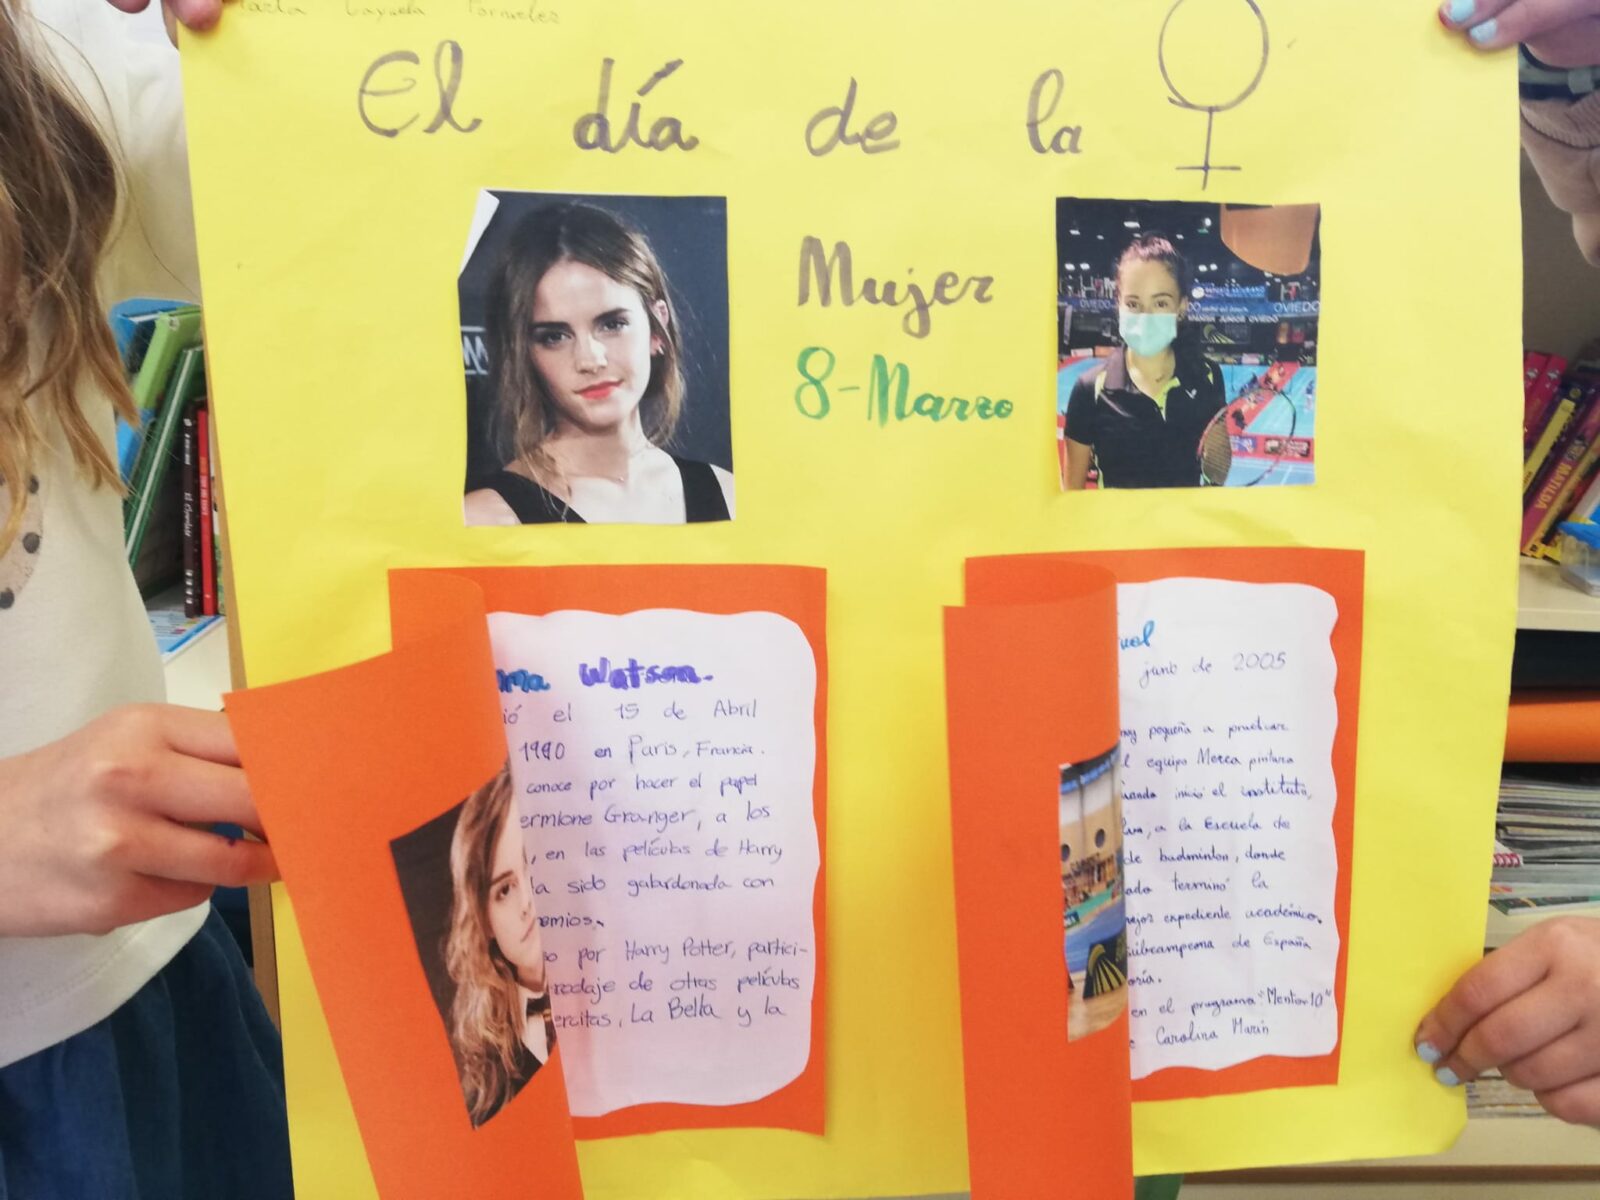 El día de la
Mujer
8-Marzo
OVIEDO
OVIEDO
MATILDA
ma Watson.
ió el 15 de Abril
1990 en París, Francia.
conoce por hacer el papel
ermione Granger, a los
, en las películas de Harry
ha sido galardonada con
emios.
o por Harry Potter, partici-
rodaje de otras películas
ercitas, La Bella y la
junio de 2005
uy pequeña a practicar
l equipo Merca pintura
uando inició el instituto,
, a la Escuela de
de badminton, donde
ado terminó la
mejor expediente académico.
subcampeona de España
oría.
en el programa "Mentor 10"
e Carolina Marín